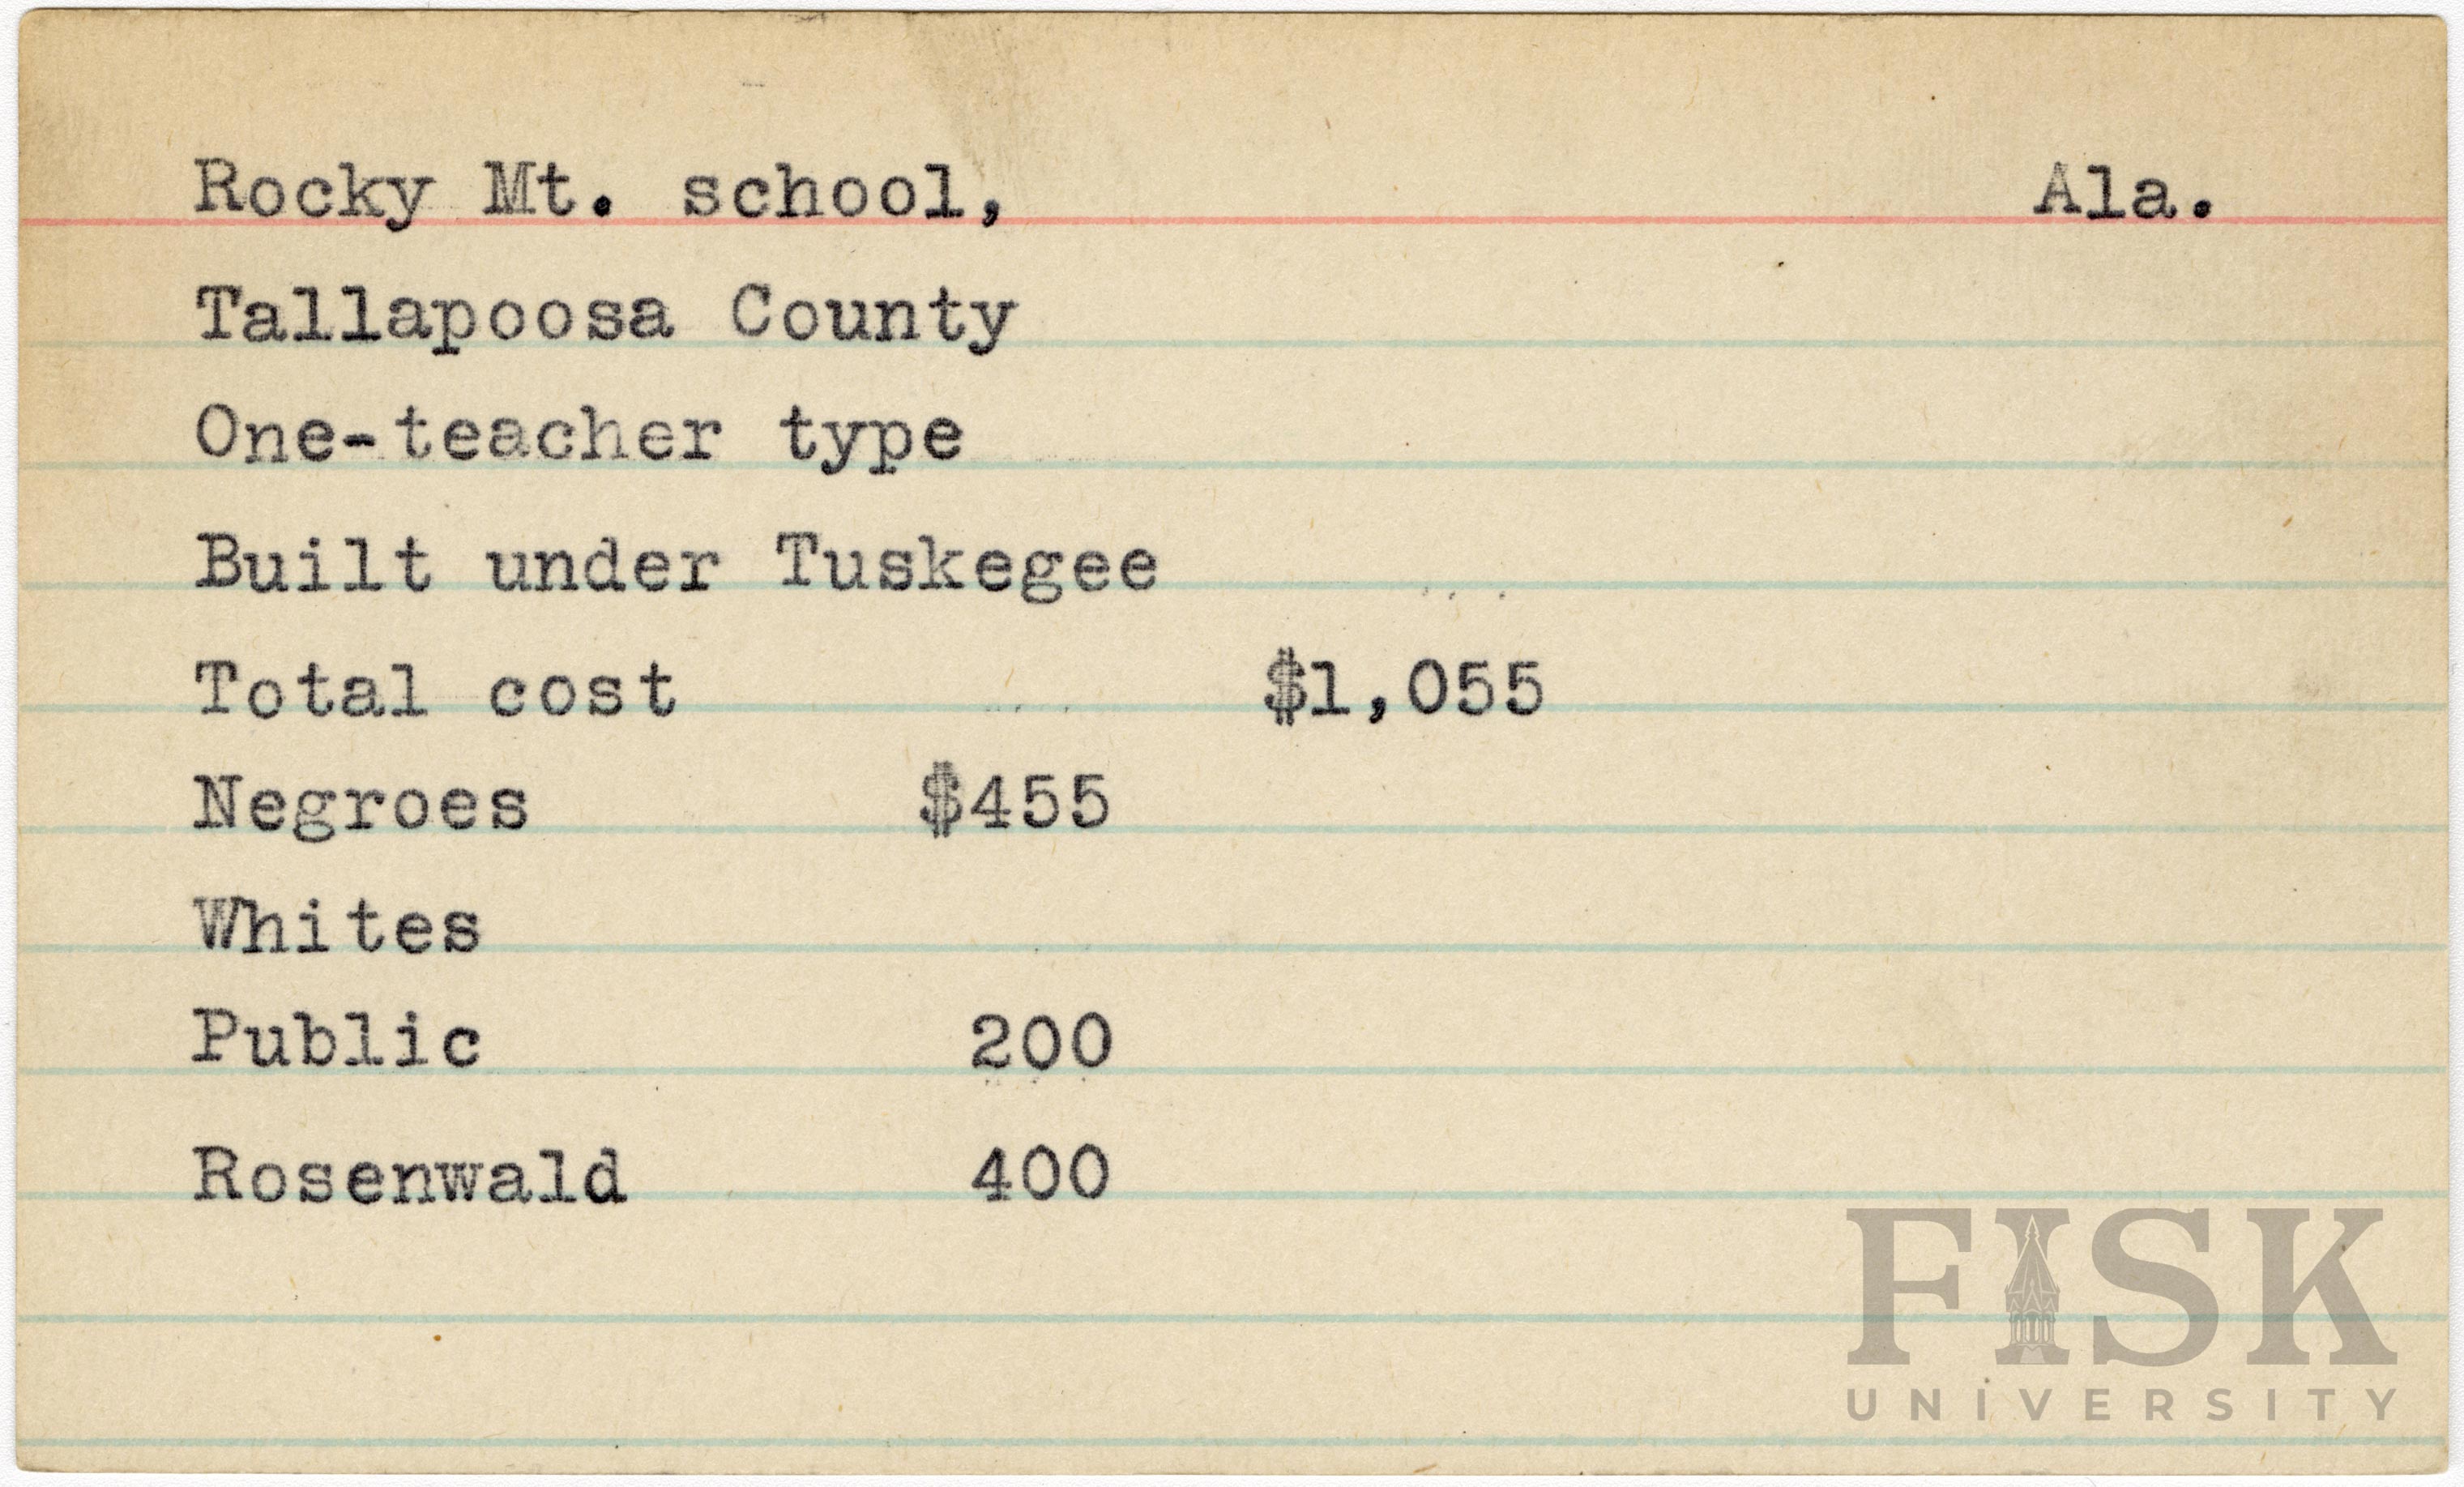 Rocky Mt. school, Ala.
Tallapoosa County
One-teacher type
Built under Tuskegee
Total cost $1,055
Negroes $455
Whites
Public 200
Rosenwald 400
FISK
UNIVERSITY